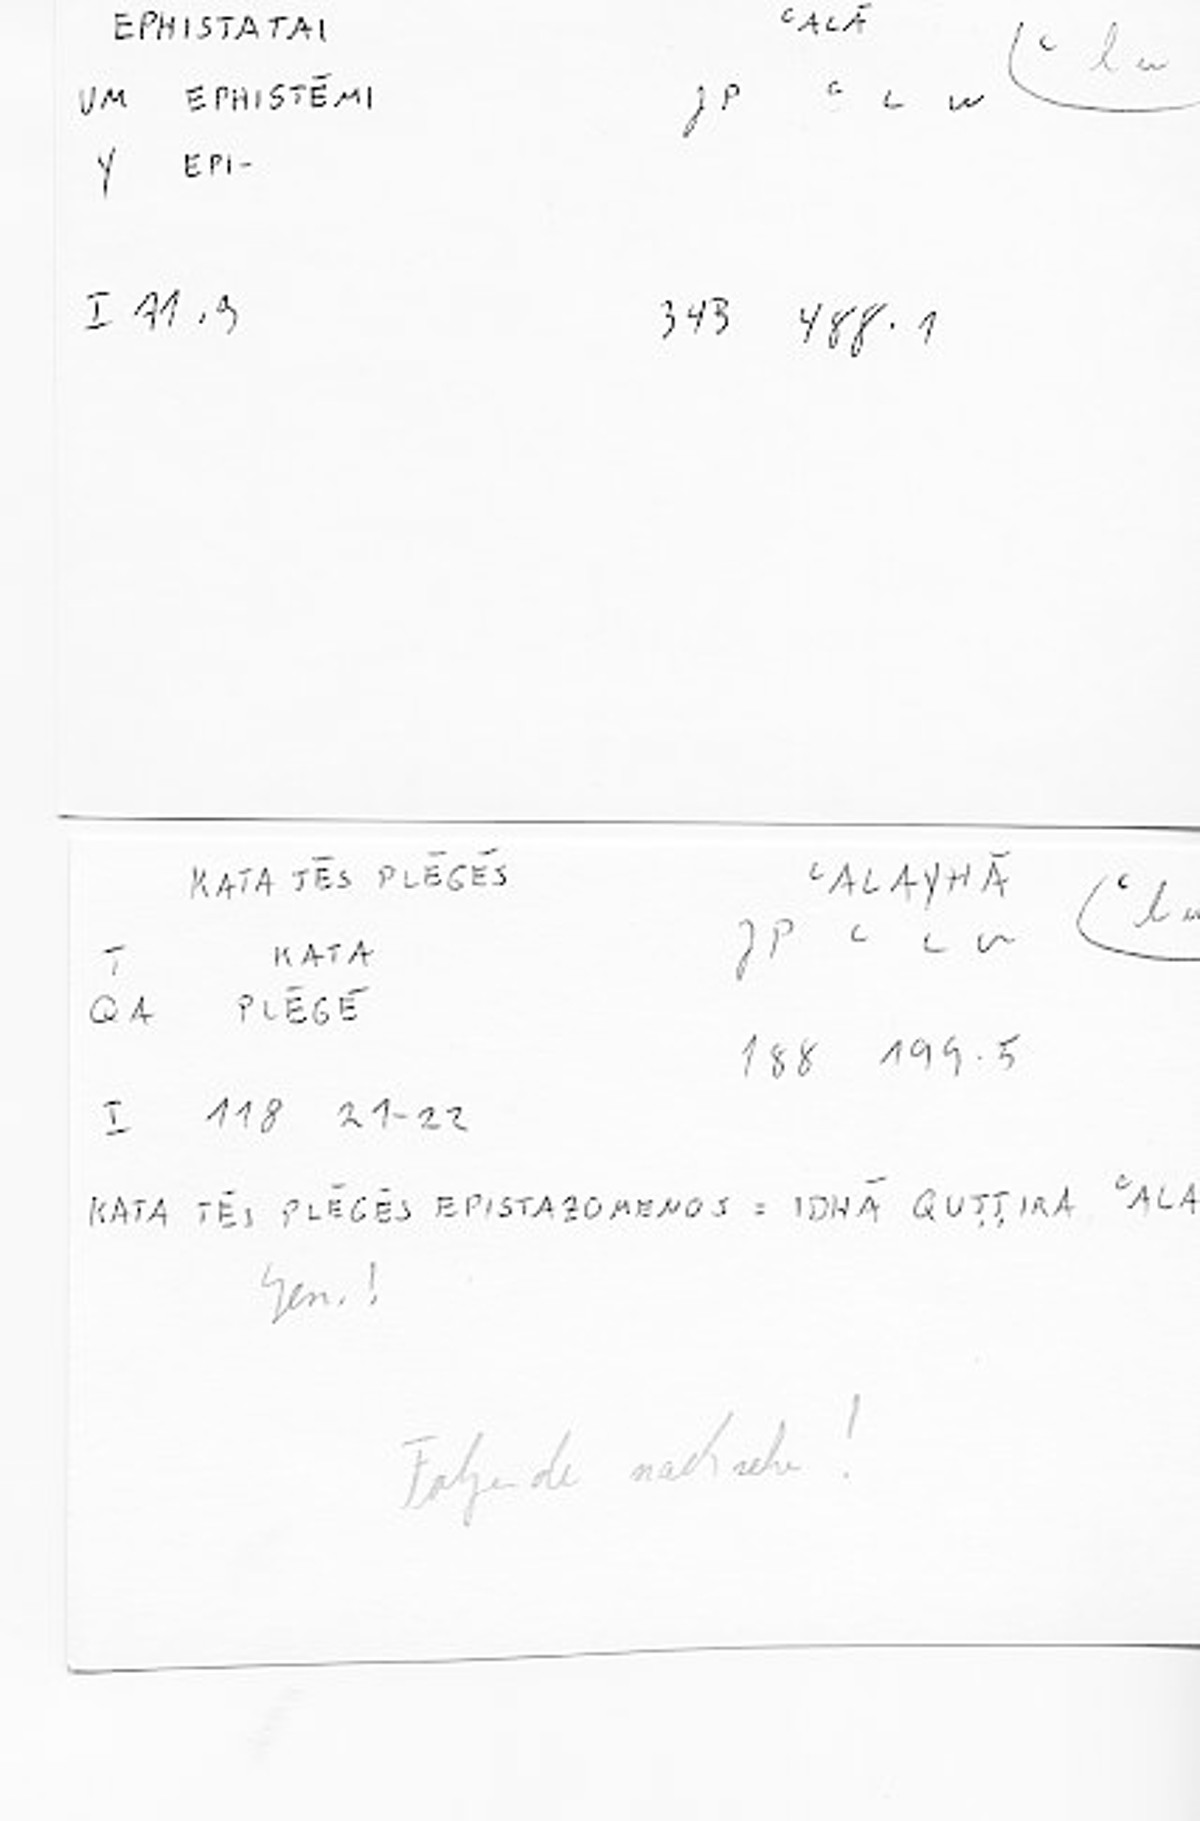 EPHISTATAI ᶜALĀ
VM EPHISTĒMI JP ᶜ L W (ᶜ l w
Y EPI-
I 71.9 343 488.1
KATA TĒS PLĒGĒS ᶜALAYHĀ (ᶜ l w
T KATA JP ᶜ L W
QA PLĒGĒ
188 199.5
I 118 21-22
KATA TĒS PLĒGĒS EPISTAZOMENOS = IDHĀ QUṬṬIRA ᶜALA
Gen.!
Folgende nachsehen!